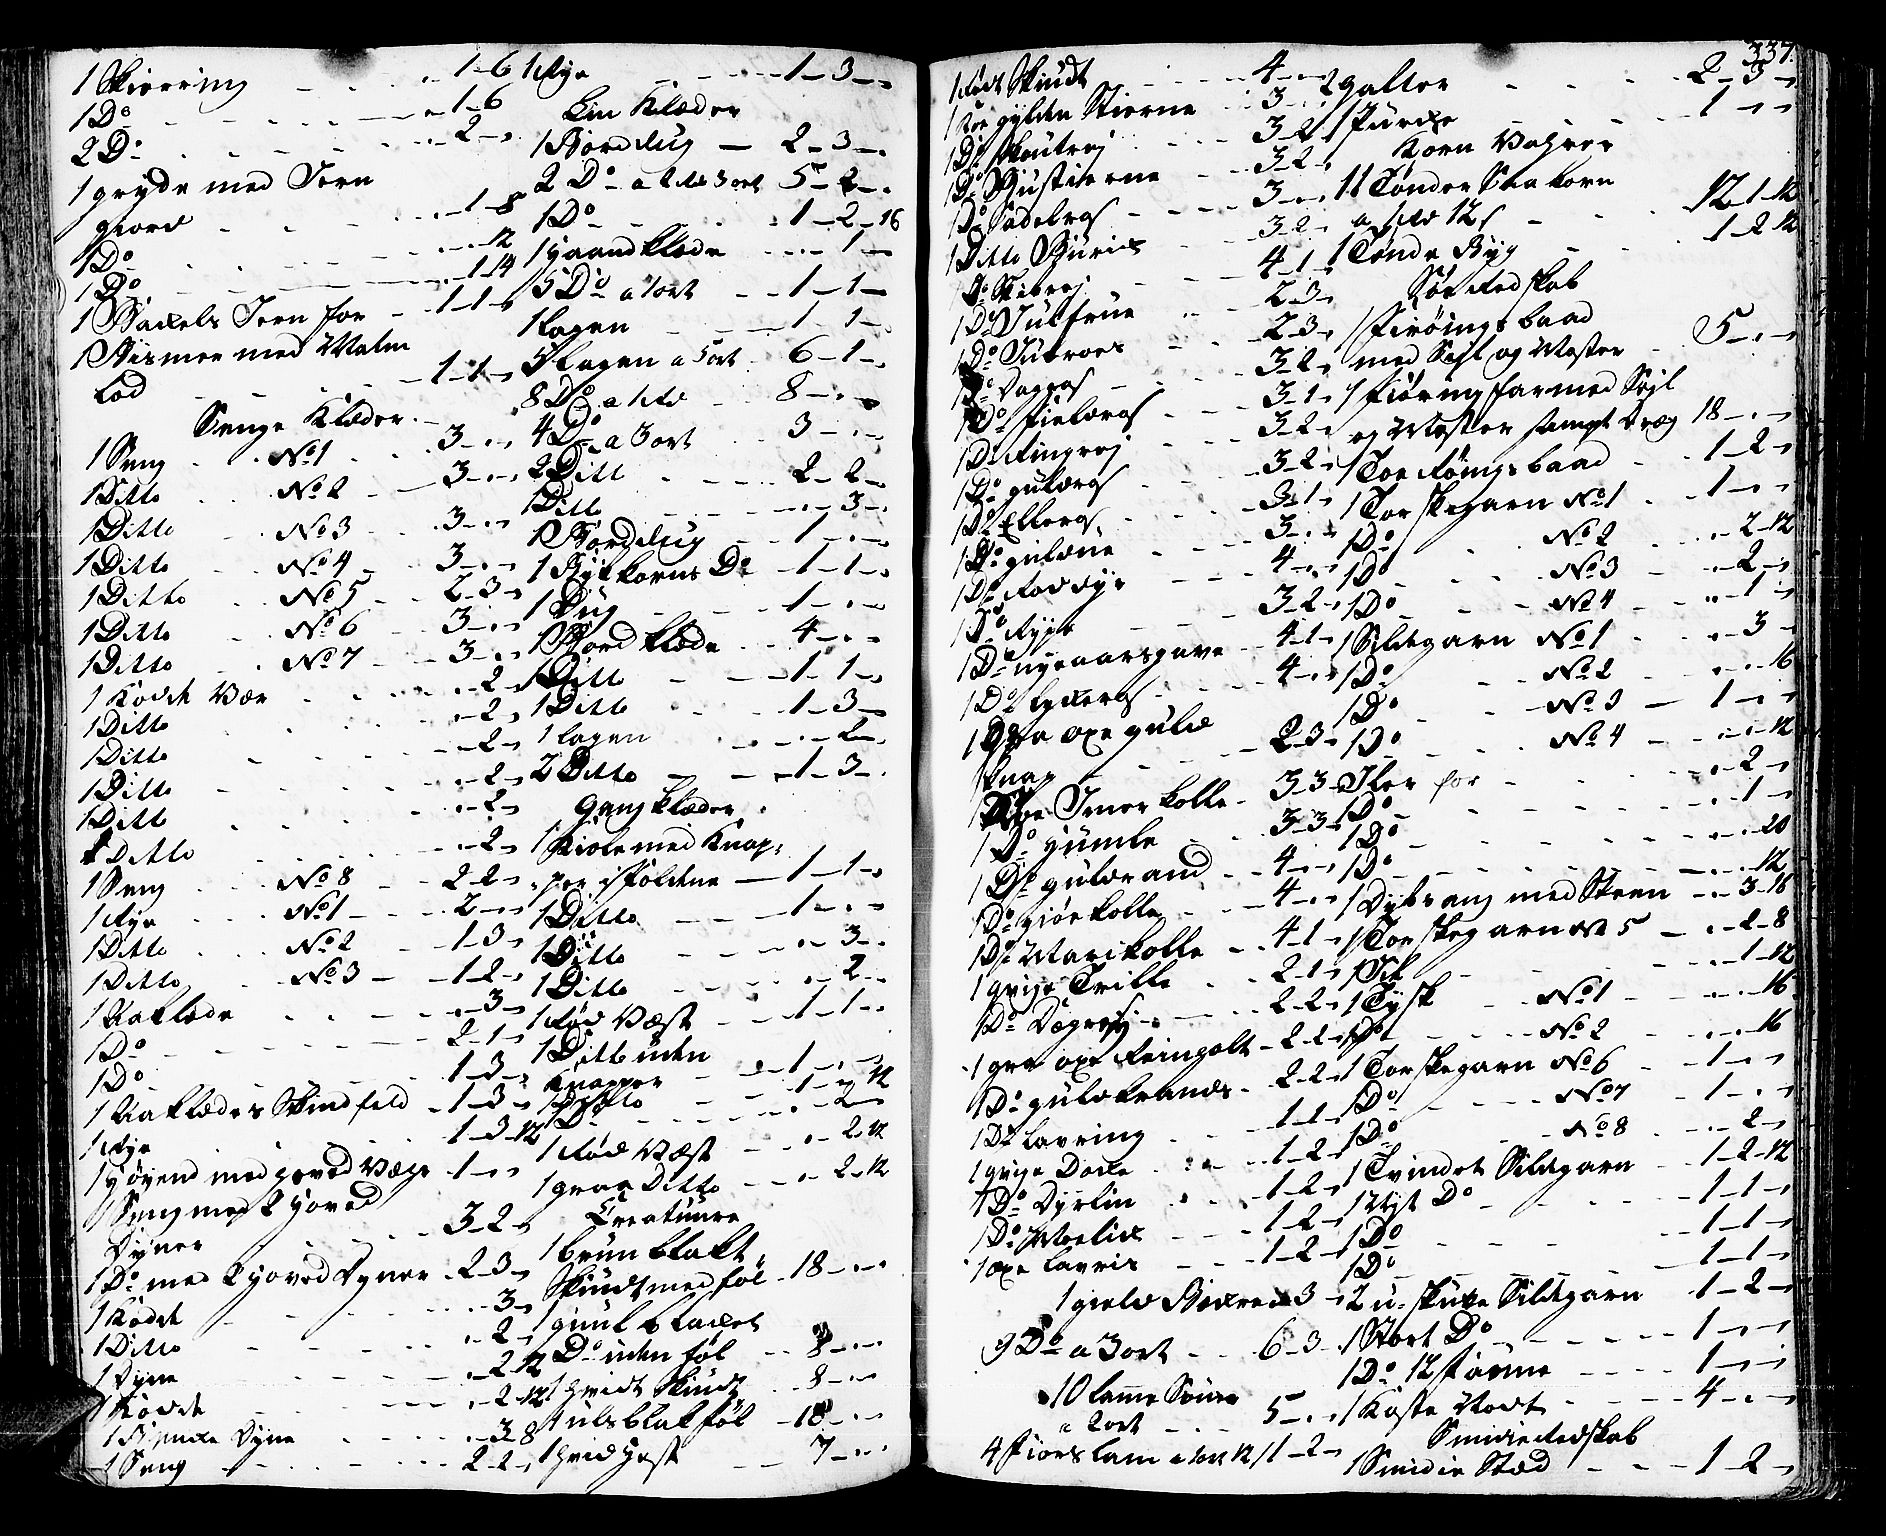 1 Skierring - - 1-6
1 Do - - 1-6
2 Do - - 2-"
1 gryde med Jern
giord - - 1-8
1 Do - - 12
1 Do - - 1-14
1 Backels Jern for - 1-1-"
1 Bismer med Malm
Lod - - 1-1-"
Senge Klæder
1 Seng No 1 3-"-"
1 Ditto No 2 3-"-"
1 Ditto No 3 3-"-"
1 Ditto No 4 3-"-"
1 Ditto No 5 2-3-"
1 Ditto No 6 3-"-"
1 Ditto No 7 3-"-"
1 Hodde Vær - 2-"
1 Ditto - 2-"
1 Ditto - 2-"
1 Ditto - 2-"
1 Ditto - 2-"
1 Ditto - 2-"
1 Seng No 8 2-2-"
1 Rye No 1 2-"-"
1 Ditto No 2 1-3-"
1 Ditto No 3 1-2-"
1 Aaklæde - 3-"
1 Do - 2-1-"
1 Do - 1-3-"
1 Aaklædes Skindfeld 1-3-"
1 Rye - 1-3-12
1 Høyend med hoved Vær 1-"-"
1 Seng med 2 hoved
Dyner 3-2-"
1 Do med 2 hoved Dyner 2-3-"
1 Hodde - 3-"
1 Ditto - 2-"
1 Dyne - 2-12
1 Hodde - 2-12
1 Dyne - 3-8
1 Seng - 2-2-"
1 Rye - 1-3-"
Lin Klæder
1 Bord dug - 2-3-"
2 Do a 1 rd 3 ort 5-2-"
1 Do - 1-2-16
1 haandklæde - 1-"
5 Do a 1 ort - 1-1-"
1 lagen - 1-1-"
5 lagen a 5 ort 6-1-"
8 Do a 1 rd - 8-"-"
4 Do a 3 ort 3-"-"
2 Ditto - 2-2-"
1 Ditto - 3-"
1 Bord dug - 1-"-"
1 Bykorns Do - 1-1-"
1 Dug - 1-"-"
1 Bord klæde - 4-"-"
1 Ditto - 1-1-"
1 Ditto - 1-3-"
1 lagen - 2-"
2 Ditto - 1-3-"
Gang klæder
1 Kiole med Knap,
per i foldene - 1-1-"
1 Ditto - 1-"-"
1 Ditto - 3-"
1 Ditto - 2-"
1 Rød Væst - 1-1-"
1 Ditto uden
Knapper - 1-"-"
1 Ditto - 1-"-12
1 Do - 2-"
1 Rød Væst - 2-12
1 graa Ditto - 2-12
Creature
1 brun blakt
Skiudt med føl - 18-"-"
1 guul blacket
Do uden føl - 8-"-"
1 hvidt Skiudt - 8-"-"
1 ulsblak føl - 10-"-"
1 hvid hest - 7-"-"
337.
1 Rødt Skiudt 4-"-"
1 Koe gylden Stierne 3-"-"
1 Do Skoutrej 3-2-"
1 Do Bustierne 3-2-"
1 Do Sadelros 3-"-"
1 Ditto Burid 3-2-"
1 Do Skibrej 4-1-"
1 Do Julfrue 2-3-"
1 Do Jutroes 2-3-"
1 Do Dagros 3-2-"
1 Do Fieldros 3-1-"
1 Do Ringrej 3-2-"
1 Do guldros 3-2-"
1 Do Elleros 3-1-"
1 Do gulæne 3-"-"
1 Do Raddyr 4-"-"
1 Do Rype 3-2-"
1 Do nyeaarsgave 4-1-"
1 Do lykeros 4-"-"
1 Do oxe guld
knap 2-3-"
1 Qvie Smørkolle 3-3-"
1 Do humle 3-3-"
1 Do guldrand 4-"-"
1 Do giørkolle 4-"-"
1 Do Marikolle 4-1-"
1 qvige Trille 2-1-"
1 Do Dagrosj 2-2-"
1 graa oxe Reingalt 2-2-"
1 Do guldbrands 2-2-"
1 Do lavring 1-1-"
1 qvige Docke 1-2-"
1 Do Dyrlin 1-2-"
1 Do Melid 1-2-"
1 oxe lavris 1-2-"
1 gield Beckre 3-"
9 Do a 3 ort 6-3-"
10 lamme Souer
a 2 ort - 5-"-"
4 Fiors lam a 1 ort 12 s 1-2-"
2 galter - 2-3-"
1 Purcke - 1-"-"
Korn Vahrer
11 Tønder Saa korn
a 1 rd 12 s - 12-1-12
1 Tønde Byg - 1-2-12
Søe Redskab
1 Firøings baad
med Sejl og Master - 5-"-"
1 Fiøring far med Sejl
og Master sampt Dræg 18-"-"
1 Toe Rømgs baad - 1-2-"
1 Torskegarn No 1 1-"-"
1 Do No 2 2-12
1 Do No 3 2-"
1 Do No 4 1-"
1 Sildegarn No 1 3-"
1 Do No 2 16
1 Do No 3 1-"-"
1 Do No 4 12
Iler for - 2-"
1 Do - 1-"
1 Do - 20
1 Do - 12
1 Dybsang med Steen 3-16
1 Torskegarn No 5 2-8
1 Sek - 1-12
1 Tysk No 1 16
1 Do No 2 16
1 Torskegarn No 6 1-"-"
1 Do No 7 1-"-"
1 Do No 8 2-"
1 Tvindet Sildegarn 1-2-12
1 Nyt Do - 1-1-"
1 Do - 1-1-"
1 Do - 1-1-"
2 u-skute Sildegarn 1-2-"
1 Stort Do - 1-"-"
1 Do 12 favne 1-"-"
1 Kaste Nodt 4-"-"
Smidie Redskab
1 Smidie Stæd - 1-2-"